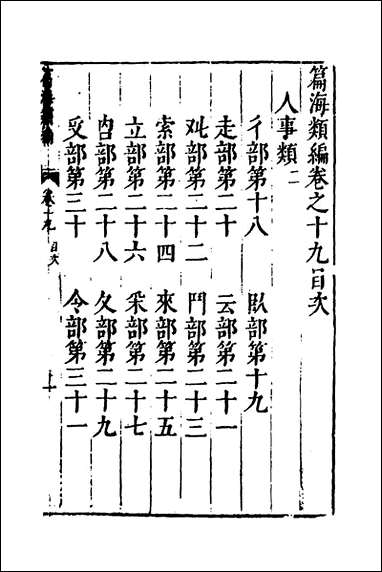 篇海類編卷之十九目次
人事類二
彳部第十八 臥部第十九
走部第二十 云部第二十一
癶部第二十二 鬥部第二十三
索部第二十四 來部第二十五
立部第二十六 釆部第二十七
㕯部第二十八 夂部第二十九
𠬪部第三十 令部第三十一
篇海類編 卷十九 目次